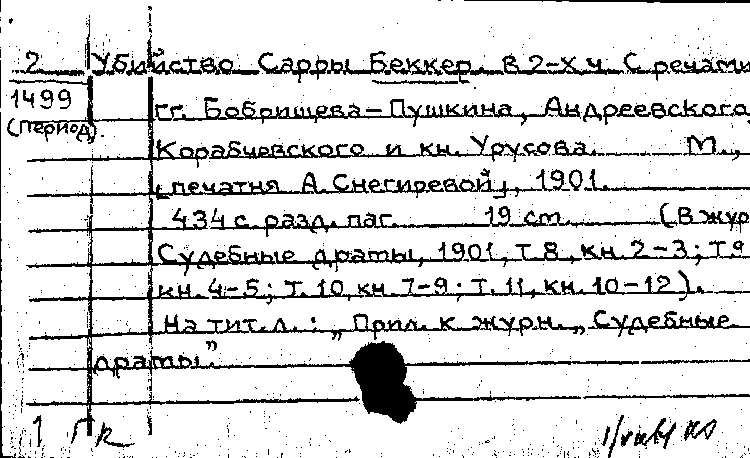 2 Убийство Сарры Беккер. В 2-х ч. С речами
1499 гг. Бобрищева-Пушкина, Андреевского,
(период). Корабчевского и кн. Урусова. М.,
[печатня А. Снегиревой], 1901.
434 с. разд. паг. 19 cm. (В жур
Судебные драты, 1901, т. 8, кн. 2-3; т. 9
кн. 4-5; т. 10, кн. 7-9; т. 11, кн. 10-12).
На тит. л.: „Прил. к журн. „Судебные
драты."
1 ГК